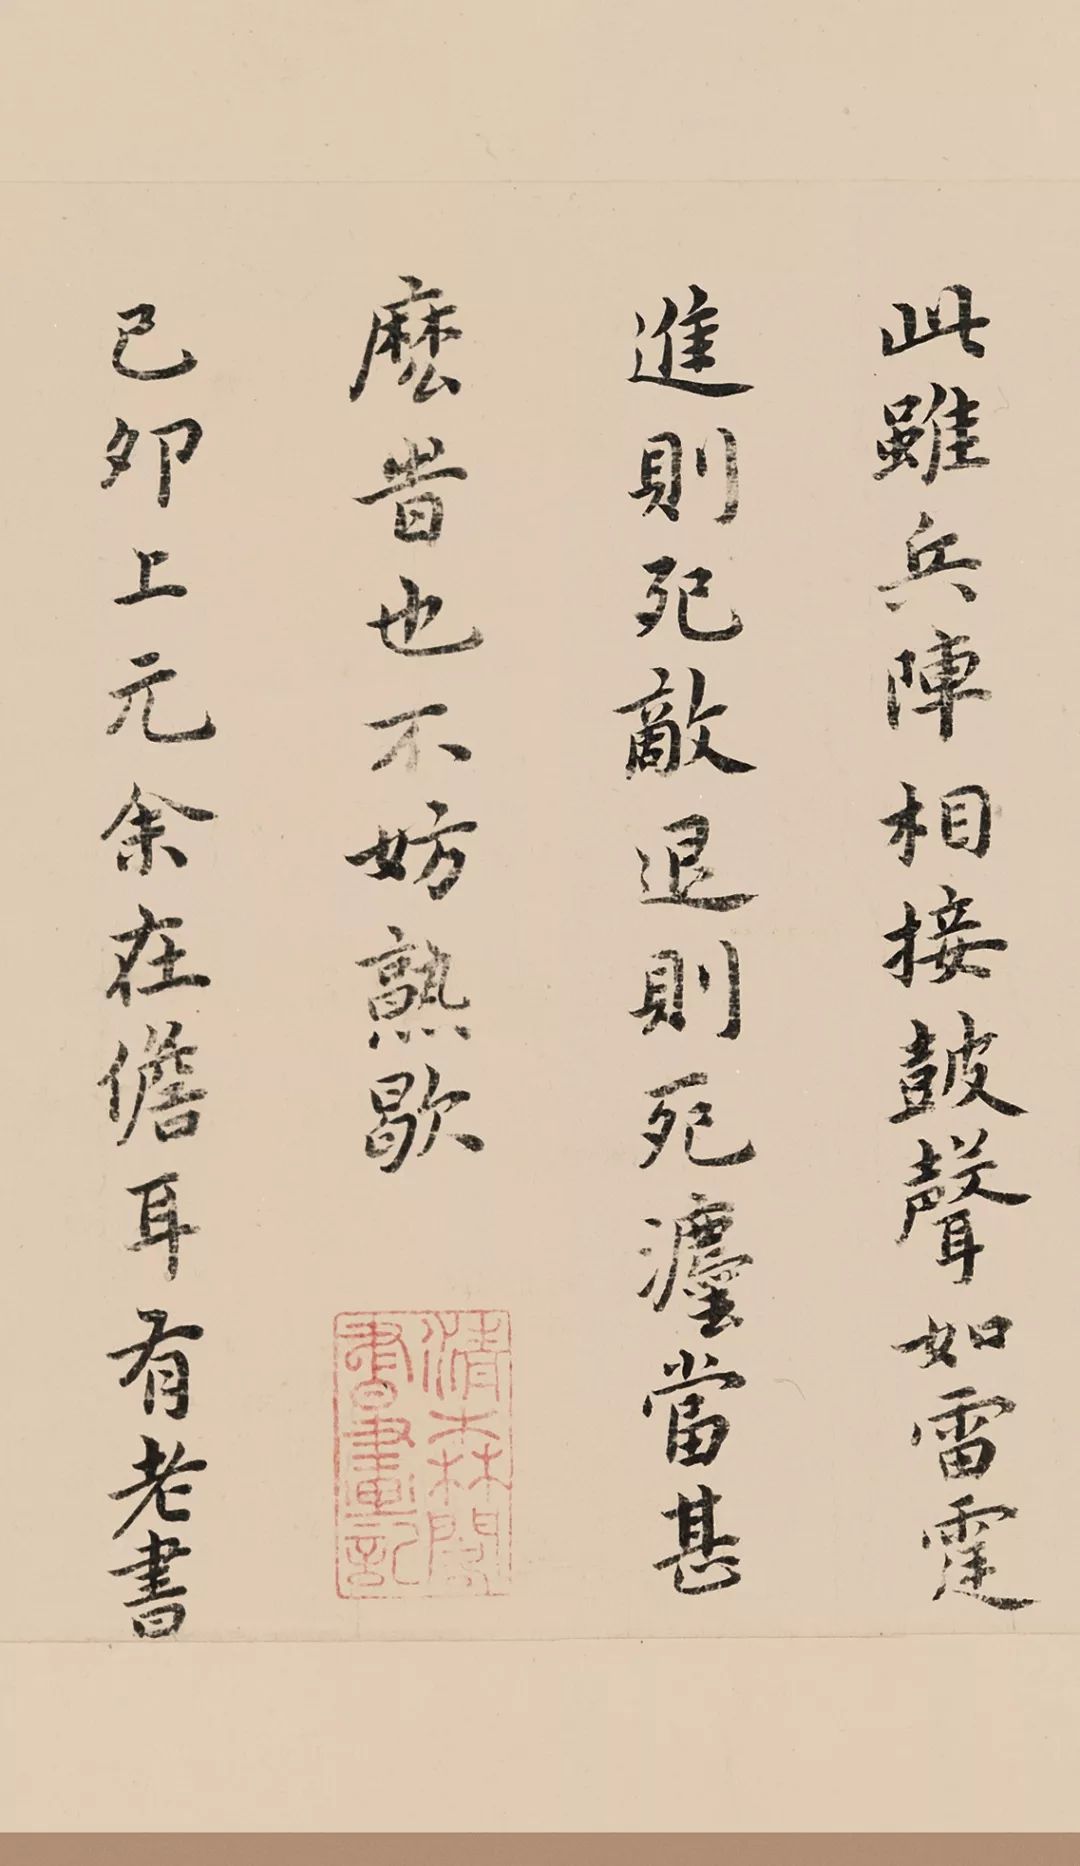 此雖兵陣相接鼓聲如雷霆
進則死敵退則死瀍當甚
麼旹也不妨熟歇
清森閣書畫記
己卯上元余在儋耳有老書